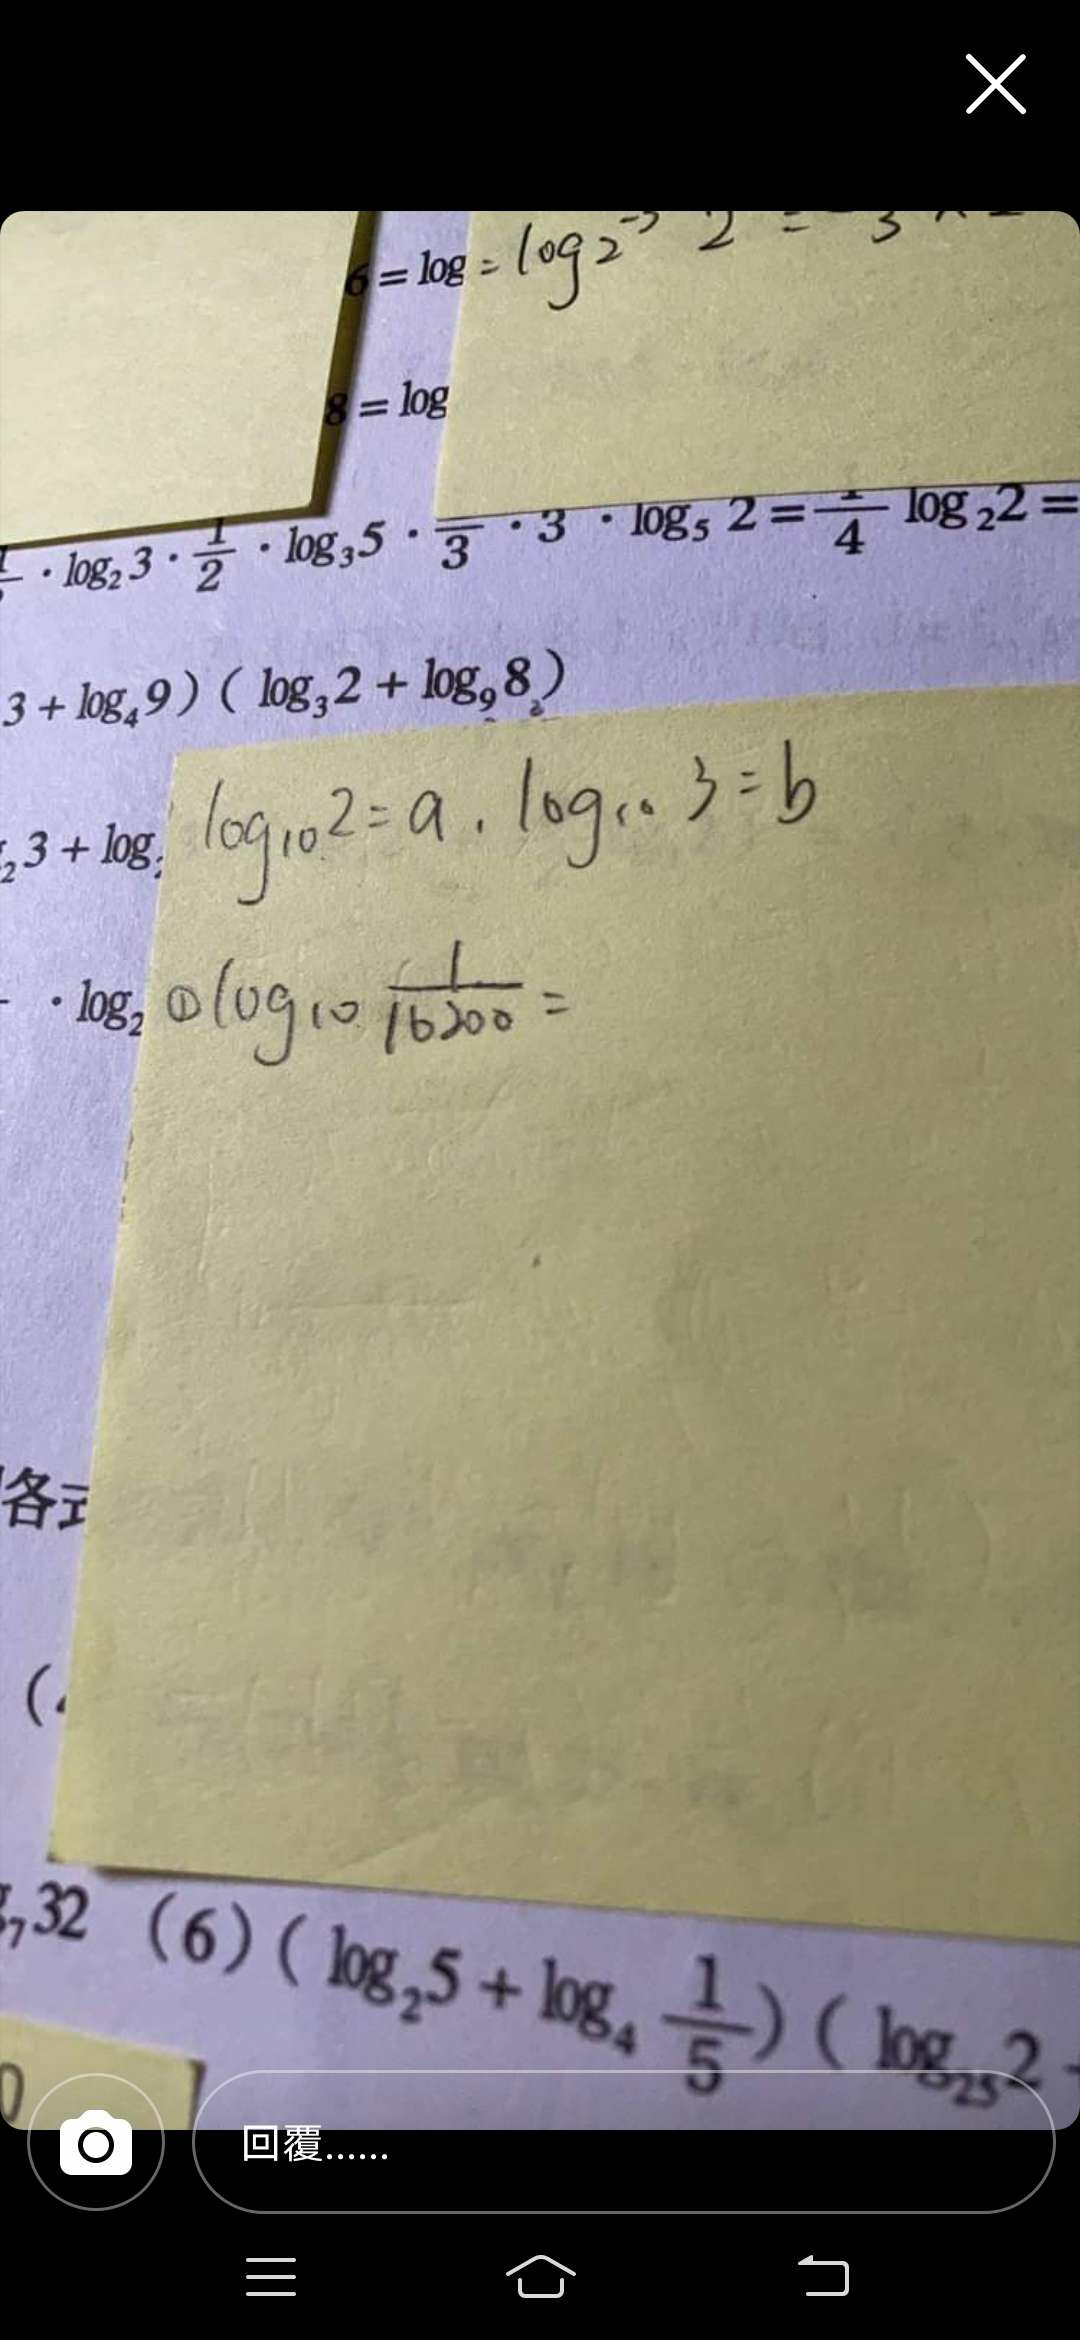 6 = log = log₂⁻³ 2 = 3
8 = log
· log₂3 · 1/2 · log₃5 · /3 · 3 · log₅ 2 = /4 log₂2 =
3 + log₄9 ) ( log₃2 + log₉8 )
log₁₀2 = a . log₁₀ 3 = b
₂3 + log
· log₂ ① log₁₀ 1/16200 =
各式
(
₇32 (6) ( log₂5 + log₄ 1/5 ) ( log₂₅2
0
回覆......